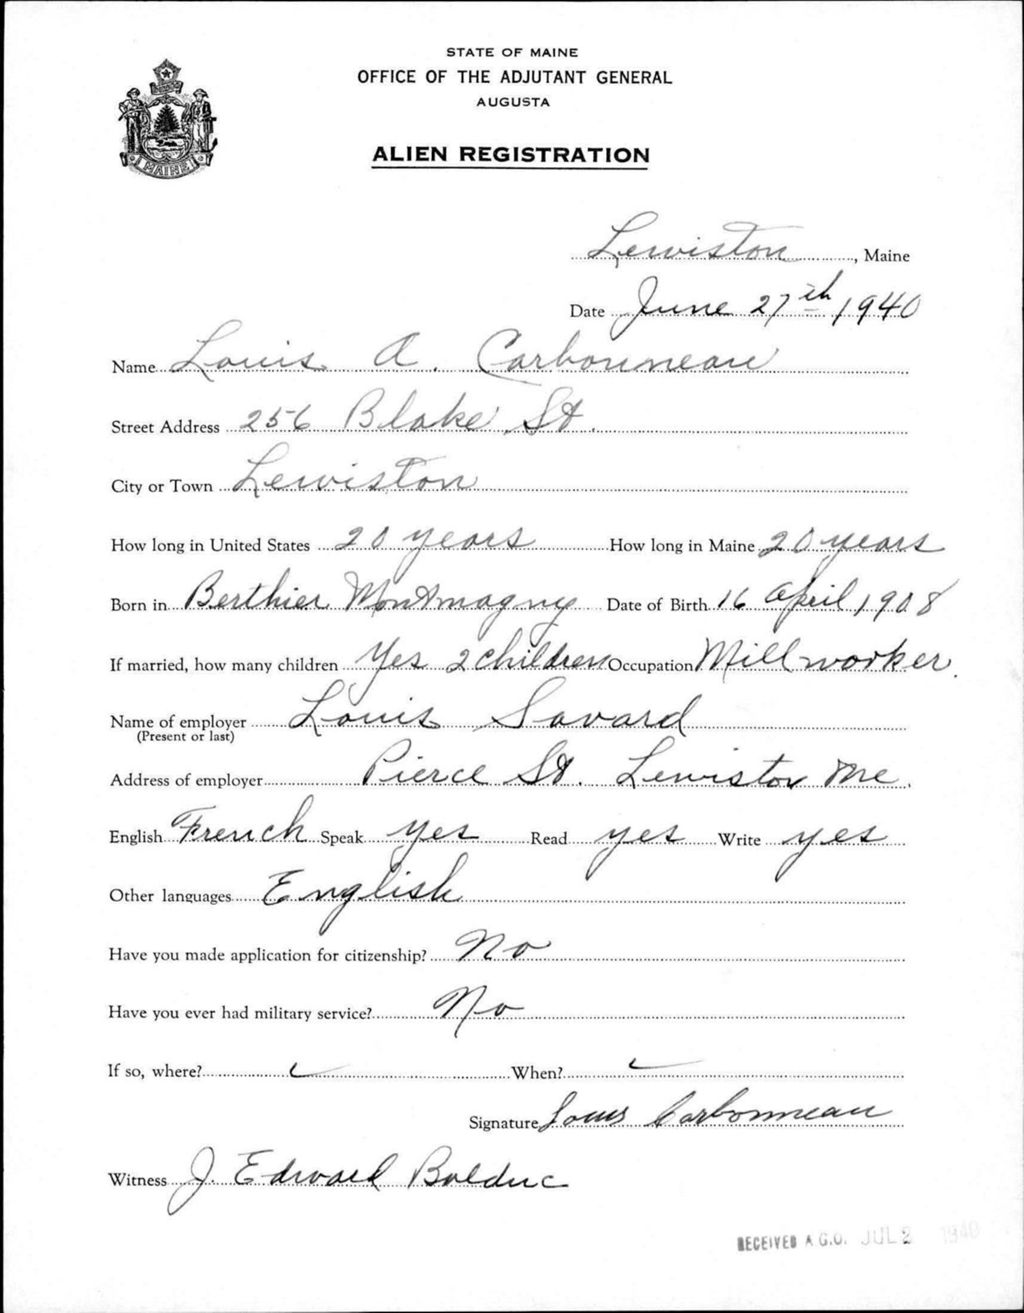 STATE OF MAINE
OFFICE OF THE ADJUTANT GENERAL
AUGUSTA
ALIEN REGISTRATION
MAINE
Lewiston, Maine
Date June 27th, 1940
Name Louis A. Carbonneau
Street Address 256 Blake St.
City or Town Lewiston
How long in United States 20 years How long in Maine 20 years
Born in Berthier Montmagny Date of Birth 16 April 1908
If married, how many children Yes 2 children Occupation Mill worker.
Name of employer Louis Savard
(Present or last)
Address of employer Pierce St. Lewiston Me.
English French Speak yes Read yes Write yes
Other languages English
Have you made application for citizenship? No
Have you ever had military service? No
If so, where? When?
Signature Louis Carbonneau
Witness J. Edward Bolduc
RECEIVED A.G.O. JUL 2 1940